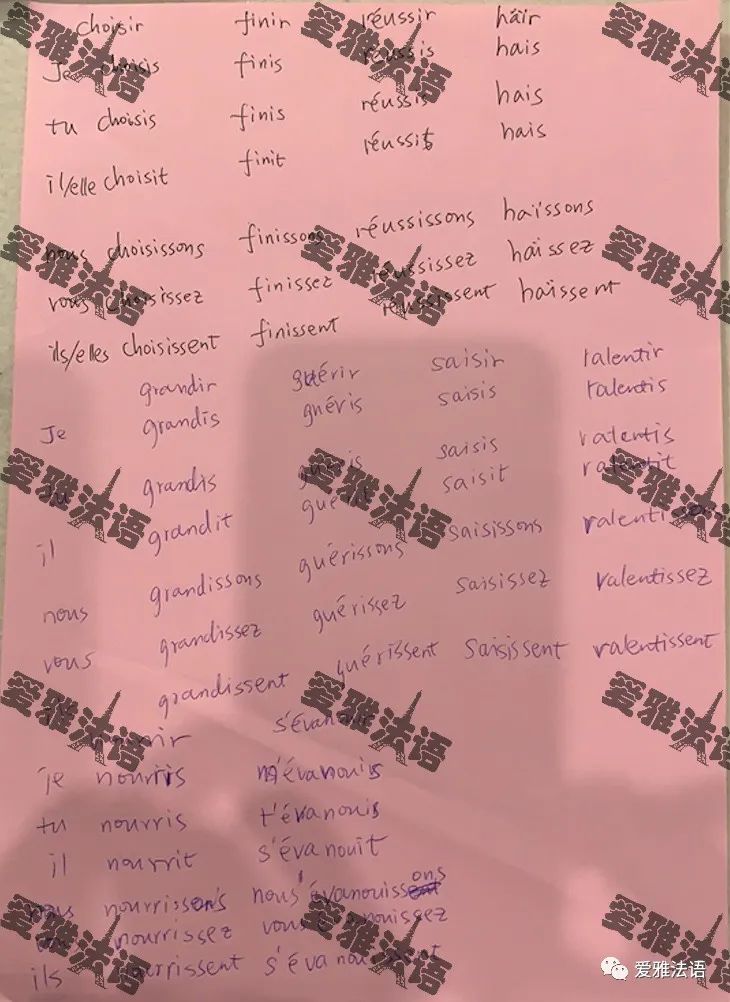 choisir finir réussir haïr
Je choisis finis réussis hais
tu choisis finis réussis hais
il/elle choisit finit réussit hais
nous choisissons finissons réussissons haïssons
vous choisissez finissez réussissez haïssez
ils/elles choisissent finissent réussissent haïssent
grandir guérir saisir ralentir
Je grandis guéris saisis ralentis
tu grandis guéris saisis ralentis
il grandit guérit saisit ralentit
nous grandissons guérissons saisissons
vous grandissez guérissez saisissez ralentissez
grandissent guérissent saisissent ralentissent
je nourris m'évanouis
tu nourris t'évanouis
il nourrit s'évanouit
nous nourrissons nous évanouissons
vous nourrissez vous évanouissez
ils nourrissent s'évanouissent
爱雅法语